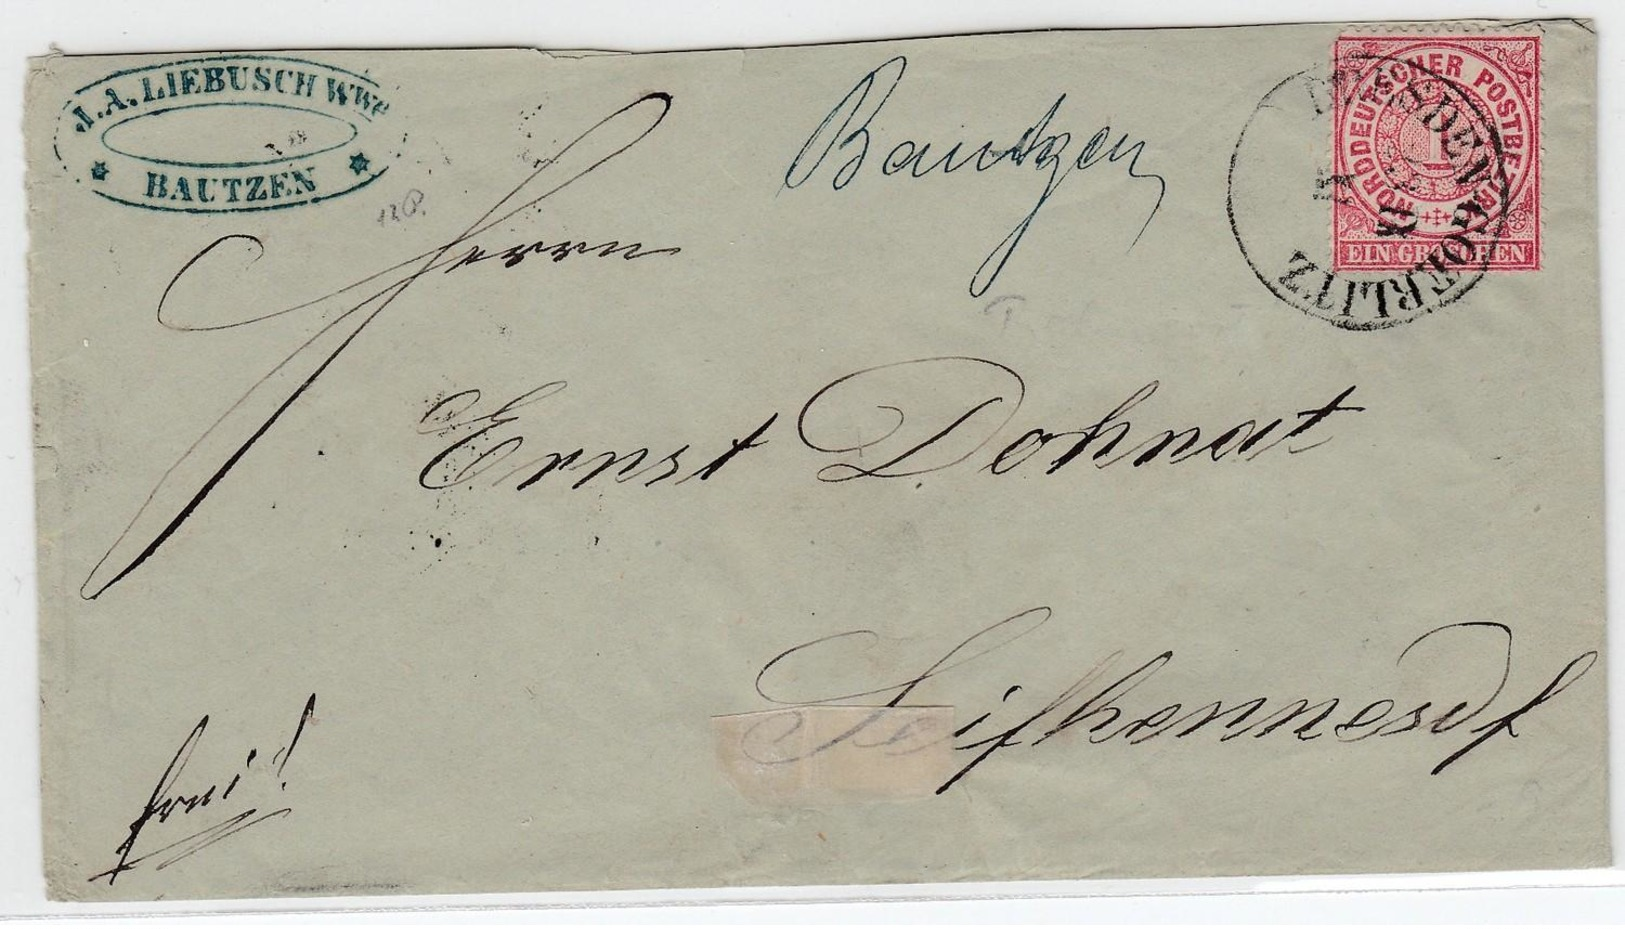 J. A. LIEBUSCH WWE
BAUTZEN
Bautzen
NORDDEUTSCHER POSTBEZIRK
1
EIN GROSCHEN
DRESDEN GOERLITZ
Herrn
Ernst Dohnat
Seifhennersdf
frei!